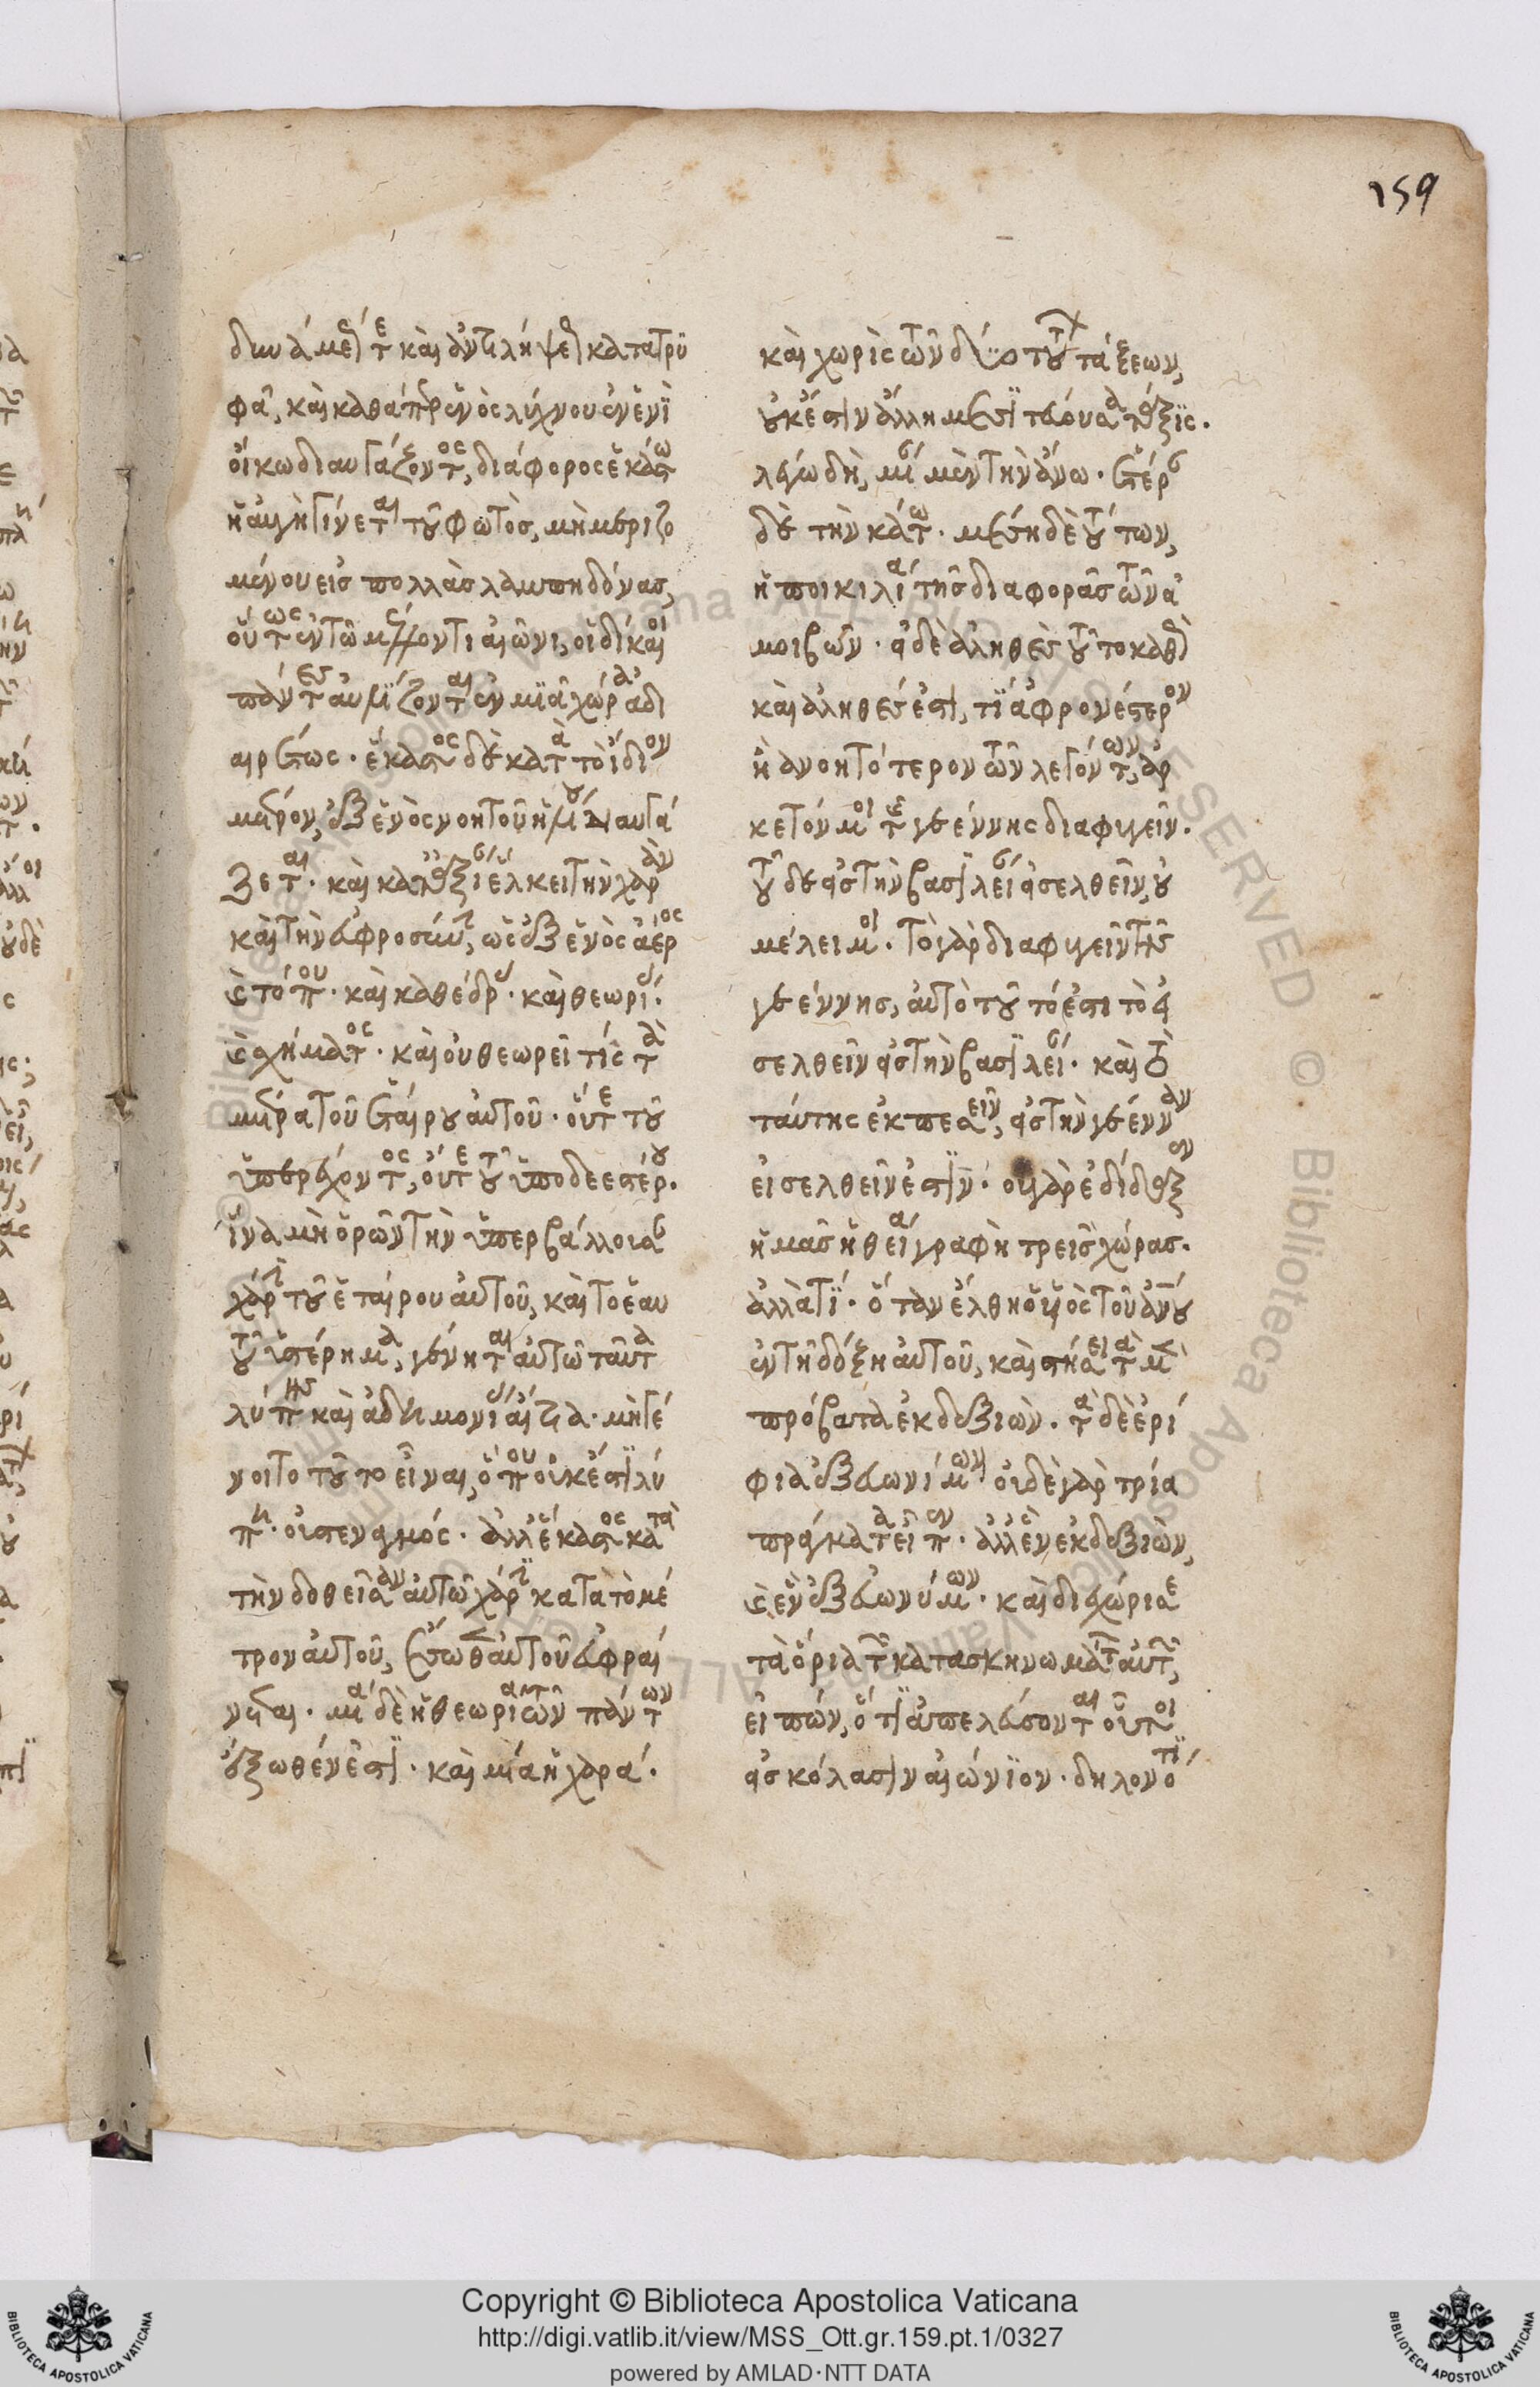 159
δυνάμει τε καὶ ἀντιλήψει κατατρυ
φᾶ, καὶ καθάπερ ἑνὸς λύχνου ἐν ἑνὶ
οἴκω διαυγάζοντος, διάφορος ἑκάστω
ἡ αὐγὴ γίνεται τοῦ φωτὸς, μὴ μεριζο
μένου εἰς πολλὰς λαμπηδόνας,
οὕτως ἐν τῶ μέλλοντι αἰῶνι, οἱ δίκαιοι
πάντες αὐλίζονται ἐν μιᾶ χώρα ἀδι
αιρέτως· ἕκαστος δὲ κατὰ τὸ ἴδιον
μέτρον, ἐξ ἑνὸς νοητοῦ ἡλίου καταυγά
ζεται· καὶ κατ' ἀξίαν ἕλκει τὴν χαρὰν
καὶ τὴν εὐφροσύνην, ὡς ἐξ ἑνὸς ἀέρος
καὶ τόπου· καὶ καθέδρας· καὶ θεωρίας·
καὶ σχήματος· καὶ οὐ θεωρεῖ τίς τὰ
μέτρα τοῦ ἑταίρου αὐτοῦ· οὔτε τοῦ
ὑπερέχοντος, οὔτε τοῦ ὑποδεεστέρου·
ἵνα μὴ ὁρῶν τὴν ὑπερβάλλουσαν
χάριν τοῦ ἑταίρου αὐτοῦ, καὶ τὸ ἑαυ
τοῦ ὑστέρημα, γένηται αὐτῶ ταῦτα
λύπης καὶ ἀδημονίας αἰτία· μὴ γέ
νοιτο τοῦτο εἶναι, ὅπου οὐκ ἔστι λύ
πη· οὐ στεναγμός· ἀλλ' ἕκαστος κατὰ
τὴν δοθεῖσαν αὐτῶ χάριν κατὰ τὸ μέ
τρον αὐτοῦ, ἔσωθεν αὐτοῦ εὐφραί
νεται· μία δὲ ἡ θεωρία τῶν πάντων
ἔξωθέν ἐστι· καὶ μία ἡ χαρά·
καὶ χωρὶς τῶν δύο τούτων τάξεων,
οὐκ ἔστιν ἄλλη μεσιτεύουσα τάξις·
λέγω δὴ, μίαν μὲν τὴν ἄνω· ἑτέραν
δὲ τὴν κάτω· μέση δὲ τούτων,
ἡ ποικιλία τῆς διαφορᾶς τῶν ἀ
μοιβῶν· εἰ δὲ ἀληθὲς τοῦτο καθὼς
καὶ ἀληθές ἐστι, τί ἀφρονέστερον
ἢ ἀνοητότερον τῶν λεγόντων, ἀρ
κετόν μοί ἐστι γεέννης διαφυγεῖν·
τοῦ δὲ εἰς τὴν βασιλείαν εἰσελθεῖν, οὐ
μέλει μοι· τὸ γὰρ διαφυγεῖν τῆς
γεέννης, αὐτὸ τοῦτό ἐστι τὸ εἰ
σελθεῖν εἰς τὴν βασιλείαν· καὶ τὸ
ταύτης ἐκπεσεῖν, εἰς τὴν γέενναν
εἰσελθεῖν ἐστίν· οὐ γὰρ ἐδίδαξεν
ἡμᾶς ἡ θεία γραφὴ τρεῖς χώρας·
ἀλλὰ τί· ὅταν ἔλθη ὁ υἱὸς τοῦ ἀνου
ἐν τῆ δόξη αὐτοῦ, καὶ στήσει τὰ μὲν
πρόβατα ἐκ δεξιῶν· τὰ δὲ ἐρί
φια ἐξ εὐωνύμων· οὐδὲ γὰρ τρία
πράγματα εἶπεν· ἀλλ' ἓν ἐκ δεξιῶν,
καὶ ἓν ἐξ εὐωνύμων· καὶ διεχώρισε
τὰ ὅρια τῶν κατασκηνωμάτων αὐτῶν,
εἰπών, ὅτι ἀπελεύσονται οὗτοι
εἰς κόλασιν αἰώνιον· δηλονότι
Copyright © Biblioteca Apostolica Vaticana
http://digi.vatlib.it/view/MSS_Ott.gr.159.pt.1/0327
powered by AMLAD·NTT DATA
BIBLIOTECA APOSTOLICA VATICANA
BIBLIOTECA APOSTOLICA VATICANA